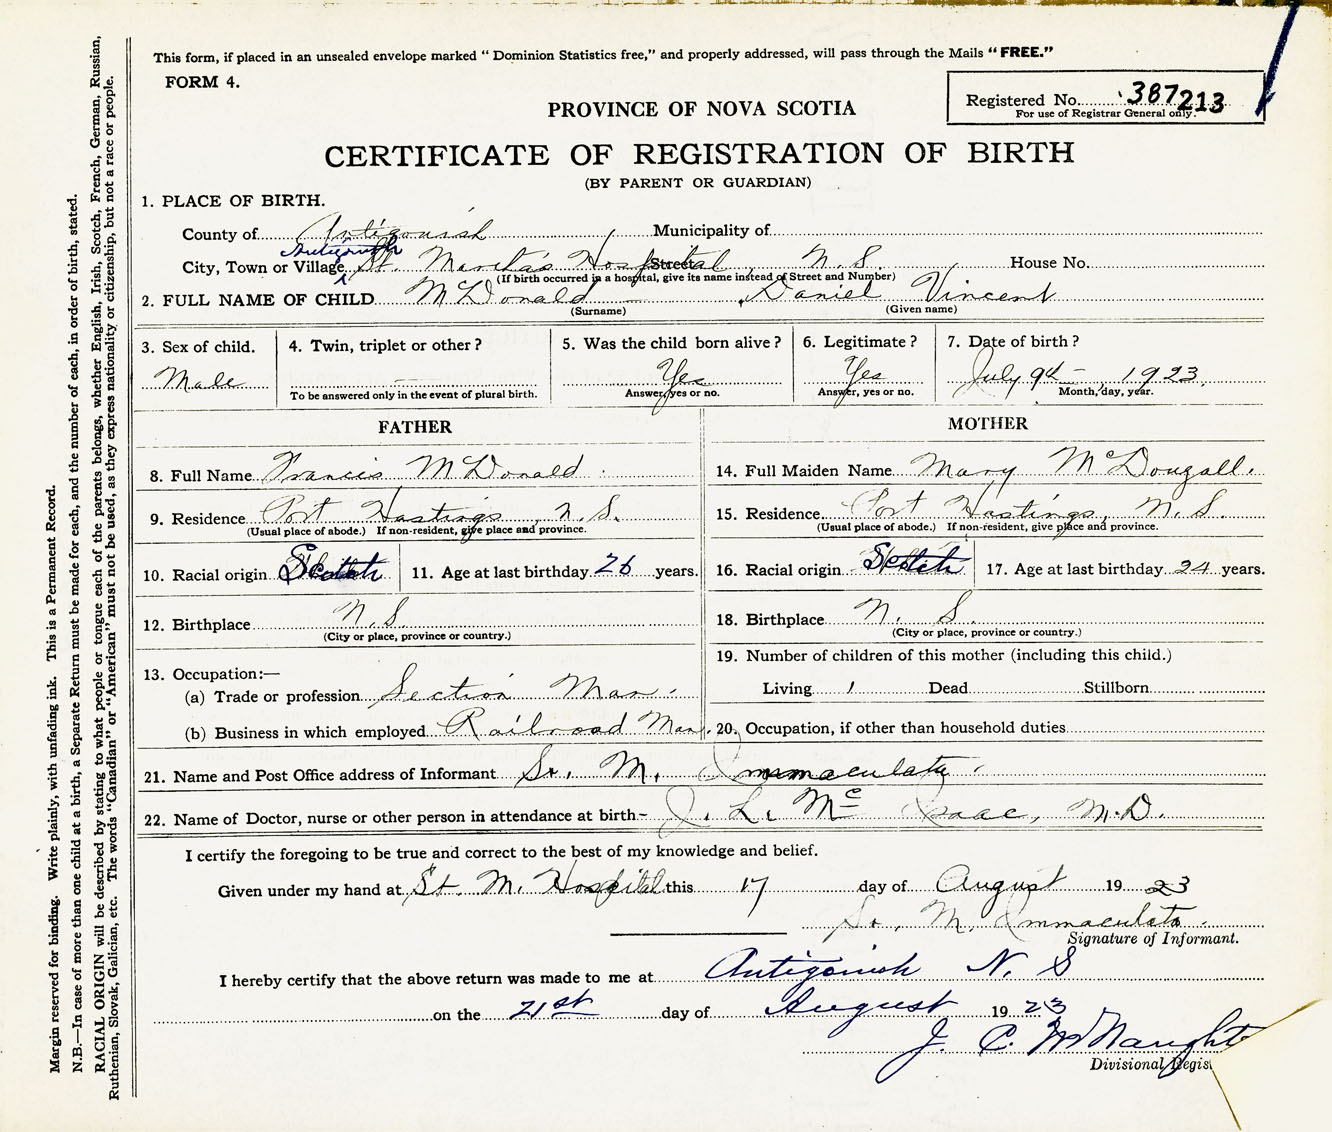 This form, if placed in an unsealed envelope marked “ Dominion Statistics free,” and properly addressed, will pass through the Mails “ FREE.”
FORM 4.
Registered No. 387213
For use of Registrar General only.
PROVINCE OF NOVA SCOTIA
CERTIFICATE OF REGISTRATION OF BIRTH
(BY PARENT OR GUARDIAN)
1. PLACE OF BIRTH.
County of Antigonish Municipality of
Antigonish
City, Town or Village St. Martha's Hospital Street N. S. House No.
(If birth occurred in a hospital, give its name instead of Street and Number)
2. FULL NAME OF CHILD McDonald Daniel Vincent
(Surname) (Given name)
3. Sex of child. 4. Twin, triplet or other ? 5. Was the child born alive ? 6. Legitimate ? 7. Date of birth ?
Male Yes Yes July 9th 1923
To be answered only in the event of plural birth. Answer, yes or no. Answer, yes or no. Month, day, year.
FATHER MOTHER
8. Full Name Francis McDonald 14. Full Maiden Name Mary McDougall.
9. Residence Port Hastings, N. S. 15. Residence Port Hastings, N. S.
(Usual place of abode.) If non-resident, give place and province. (Usual place of abode.) If non-resident, give place and province.
10. Racial origin Scotch 11. Age at last birthday 26 years. 16. Racial origin Scotch 17. Age at last birthday 24 years.
12. Birthplace N. S 18. Birthplace N. S.
(City or place, province or country.) (City or place, province or country.)
13. Occupation:— 19. Number of children of this mother (including this child.)
(a) Trade or profession Section Man. Living 1 Dead Stillborn
(b) Business in which employed Railroad Man. 20. Occupation, if other than household duties
21. Name and Post Office address of Informant Sr. M. Immaculata
22. Name of Doctor, nurse or other person in attendance at birth- J. L. McIsaac, M.D.
I certify the foregoing to be true and correct to the best of my knowledge and belief.
Given under my hand at St. M. Hospital this 17 day of August 19 23
Sr. M. Immaculata.
Signature of Informant.
I hereby certify that the above return was made to me at Antigonish N. S
on the 21st day of August 19 23
J. C. McNaught
Divisional Regis
Margin reserved for binding. Write plainly, with unfading ink. This is a Permanent Record.
N.B.—In case of more than one child at a birth, a Separate Return must be made for each, and the number of each, in order of birth, stated.
RACIAL ORIGIN will be described by stating to what people or tongue each of the parents belongs, whether English, Irish, Scotch, French, German, Russian,
Ruthenian, Slovak, Galician, etc. The words “Canadian” or “American” must not be used, as they express nationality or citizenship, but not a race or people.